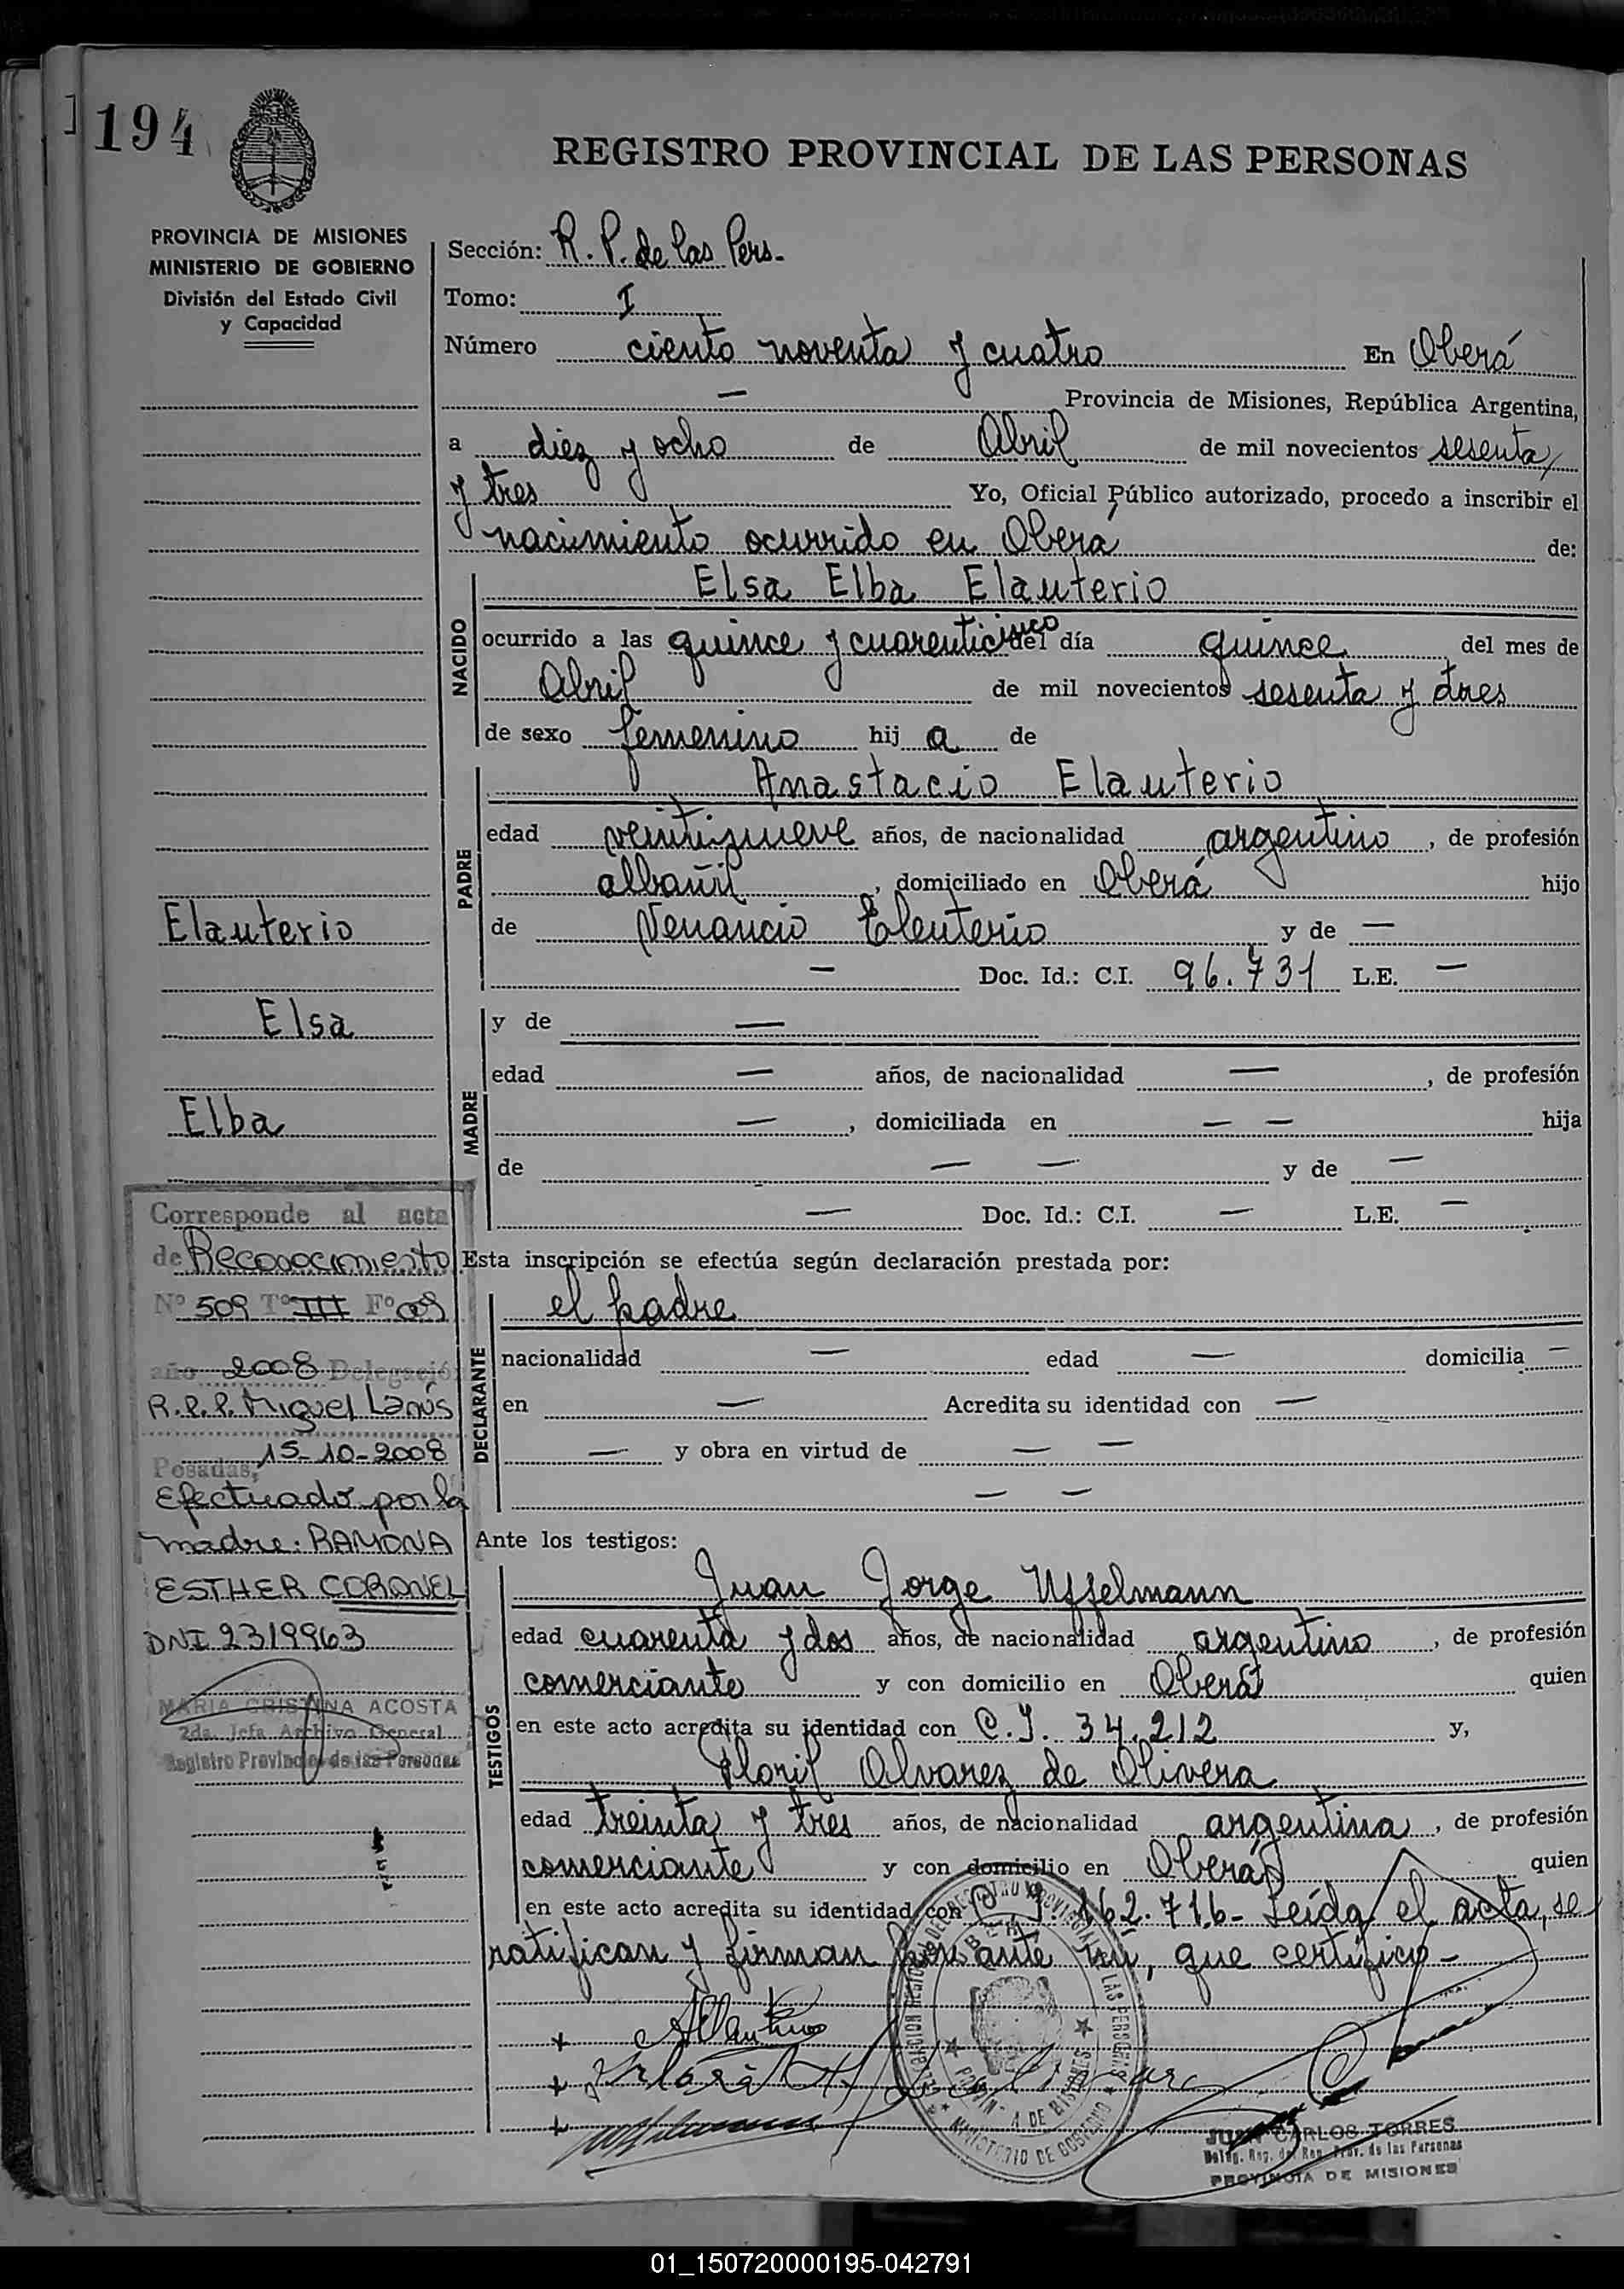 194
REGISTRO PROVINCIAL DE LAS PERSONAS
PROVINCIA DE MISIONES
MINISTERIO DE GOBIERNO
División del Estado Civil
y Capacidad
Sección: R. P. de las Pers.
Tomo: I
Número ciento noventa y cuatro En Oberá
— Provincia de Misiones, República Argentina,
a diez y ocho de Abril de mil novecientos sesenta
y tres Yo, Oficial Público autorizado, procedo a inscribir el
nacimiento ocurrido en Oberá de:
NACIDO
Elsa Elba Elauterio
ocurrido a las quince y cuarenticinco del día quince del mes de
Abril de mil novecientos sesenta y tres
de sexo femenino hij a de
PADRE
Anastacio Elauterio
edad veintinueve años, de nacionalidad argentino, de profesión
albañil, domiciliado en Oberá hijo
de Venancio Eleuterio y de —
— Doc. Id.: C.I. 96.731 L.E. —
MADRE
y de —
edad — años, de nacionalidad —, de profesión
—, domiciliada en — — hija
de — — y de —
— Doc. Id.: C.I. — L.E. —
Esta inscripción se efectúa según declaración prestada por:
DECLARANTE
el padre
nacionalidad — edad — domicilia —
en — Acredita su identidad con —
— y obra en virtud de — —
— —
Ante los testigos:
TESTIGOS
Juan Jorge Uffelmann
edad cuarenta y dos años, de nacionalidad argentino, de profesión
comerciante y con domicilio en Oberá quien
en este acto acredita su identidad con C.I. 34.212 y,
Alvarez de Olivera
edad treinta y tres años, de nacionalidad argentina, de profesión
comerciante y con domicilio en Oberá quien
en este acto acredita su identidad con C.I. 162.716- Leída el acta, se
ratifican y firman por ante mí, que certifico-
Elauterio
Elsa
Elba
Corresponde al acta
de Reconocimiento
Nº 509 Tº III Fº 09
año 2008 Delegación
R.P.P. Miguel Lanús
Posadas, 15-10-2008
Efectuado por la
madre: RAMONA
ESTHER CORONEL
DNI 2319963
MARIA CRISTINA ACOSTA
2da. Jefa Archivo General
Registro Provincial de las Personas
MINISTERIO DE GOBIERNO
JUAN CARLOS TORRES
Deleg. Reg. del Reg. Prov. de las Personas
PROVINCIA DE MISIONES
01_150720000195-042791